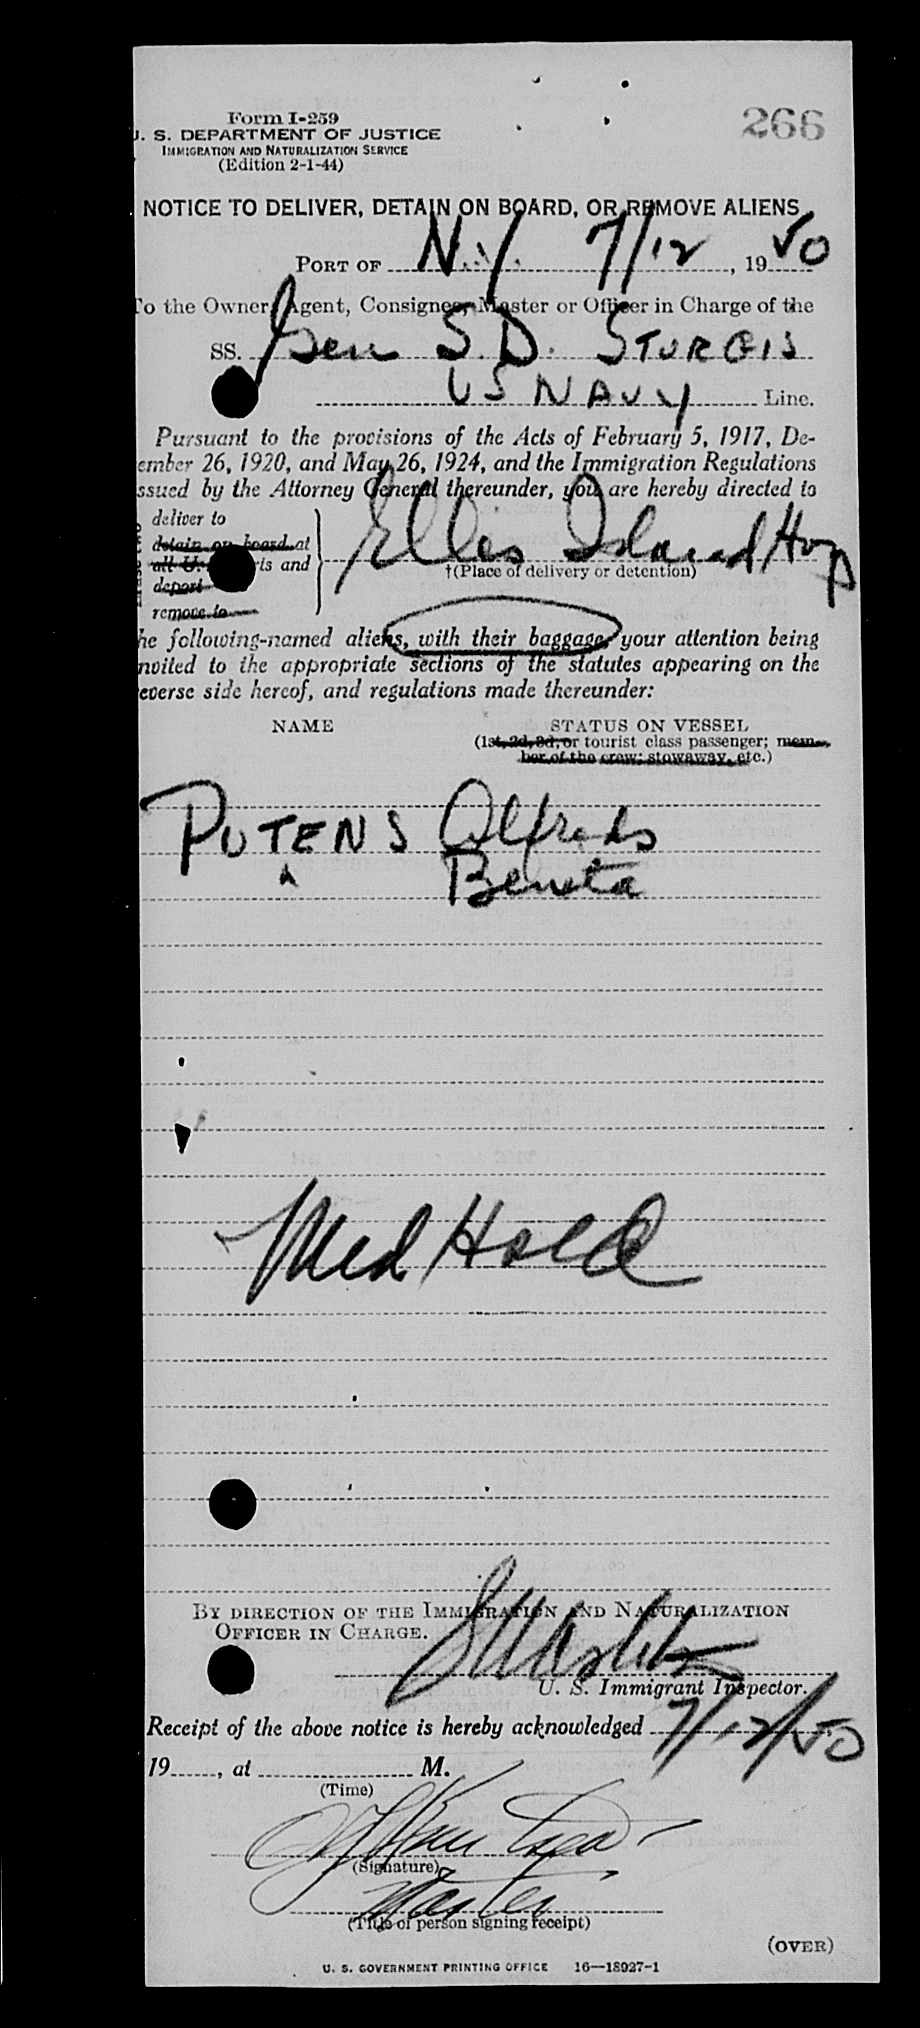 266
Form I-259
U. S. DEPARTMENT OF JUSTICE
IMMIGRATION AND NATURALIZATION SERVICE
(Edition 2-1-44)
NOTICE TO DELIVER, DETAIN ON BOARD, OR REMOVE ALIENS
PORT OF N.Y. 7/12, 1950
To the Owner, Agent, Consignee, Master or Officer in Charge of the
SS. Gen S.D. STURGIS
US NAVY Line.
Pursuant to the provisions of the Acts of February 5, 1917, De-
ember 26, 1920, and May 26, 1924, and the Immigration Regulations
ssued by the Attorney General thereunder, you are hereby directed to
deliver to
detain on board at
all U. is and
deport
remove to
Ellis Island Hosp
†(Place of delivery or detention)
he following-named aliens, with their baggage, your attention being
nvited to the appropriate sections of the statutes appearing on the
everse side hereof, and regulations made thereunder:
NAME STATUS ON VESSEL
(1st, 2d, 3d, or tourist class passenger; mem-
ber of the crew; stowaway, etc.)
PUTENS Alfreds
Benita
Med Hold
BY DIRECTION OF THE IMMIGRATION AND NATURALIZATION
OFFICER IN CHARGE.
U. S. Immigrant Inspector.
Receipt of the above notice is hereby acknowledged 7/12/50
19____, at ____ M.
(Time)
(Signature)
Master
(Title of person signing receipt)
(OVER)
U. S. GOVERNMENT PRINTING OFFICE 16—18927-1